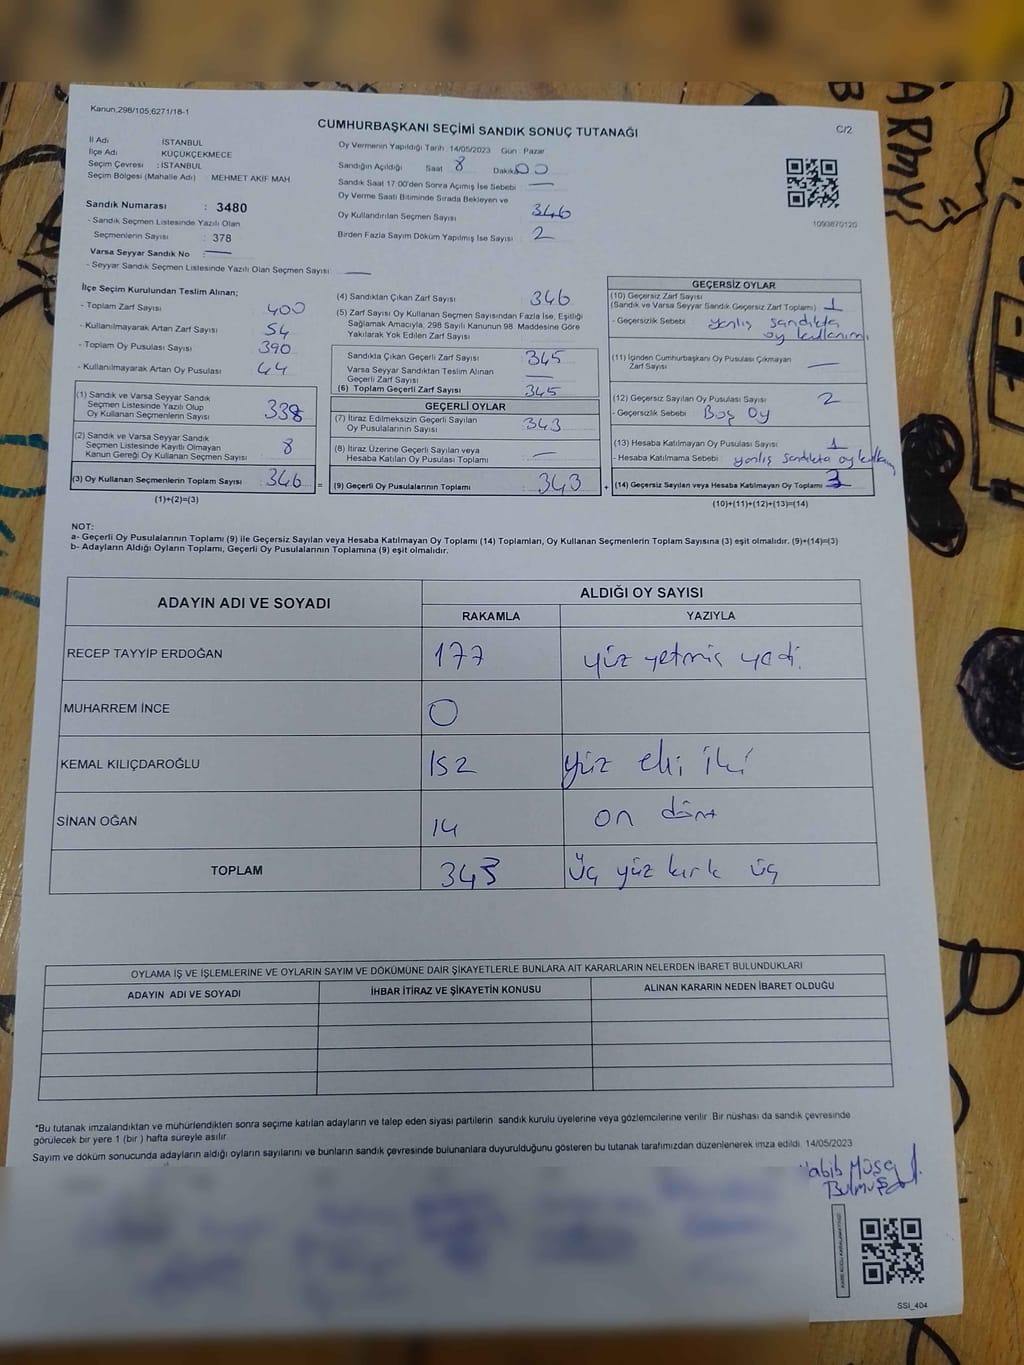 Kanun,298/105,6271/18-1
CUMHURBAŞKANI SEÇİMİ SANDIK SONUÇ TUTANAĞI
C/2
İl Adı İSTANBUL
İlçe Adı KÜÇÜKÇEKMECE
Seçim Çevresi : İSTANBUL
Seçim Bölgesi (Mahalle Adı) MEHMET AKİF MAH
Sandık Numarası : 3480
- Sandık Seçmen Listesinde Yazılı Olan
Seçmenlerin Sayısı : 378
Varsa Seyyar Sandık No : —
- Seyyar Sandık Seçmen Listesinde Yazılı Olan Seçmen Sayısı: —
Oy Vermenin Yapıldığı Tarih :14/05/2023 Gün : Pazar
Sandığın Açıldığı Saat 8 Dakika 00
Sandık Saat 17.00'den Sonra Açımış İse Sebebi —
Oy Verme Saati Bitiminde Sırada Bekleyen ve
Oy Kullandırılan Seçmen Sayısı 346
Birden Fazla Sayım Döküm Yapılmış İse Sayısı : 2
1093870120
İlçe Seçim Kurulundan Teslim Alınan;
- Toplam Zarf Sayısı 400
- Kullanılmayarak Artan Zarf Sayısı 54
- Toplam Oy Pusulası Sayısı 390
- Kullanılmayarak Artan Oy Pusulası 44
(1) Sandık ve Varsa Seyyar Sandık
Seçmen Listesinde Yazılı Olup
Oy Kullanan Seçmenlerin Sayısı 338
(2) Sandık ve Varsa Seyyar Sandık
Seçmen Listesinde Kayıtlı Olmayan
Kanun Gereği Oy Kullanan Seçmen Sayısı 8
(3) Oy Kullanan Seçmenlerin Toplam Sayısı : 346 =
(1)+(2)=(3)
(4) Sandıktan Çıkan Zarf Sayısı : 346
(5) Zarf Sayısı Oy Kullanan Seçmen Sayısından Fazla İse, Eşitliği
Sağlamak Amacıyla, 298 Sayılı Kanunun 98. Maddesine Göre
Yakılarak Yok Edilen Zarf Sayısı
Sandıkta Çıkan Geçerli Zarf Sayısı 345
Varsa Seyyar Sandıktan Teslim Alınan
Geçerli Zarf Sayısı —
(6) Toplam Geçerli Zarf Sayısı 345
GEÇERLİ OYLAR
(7) İtiraz Edilmeksizin Geçerli Sayılan
Oy Pusulalarının Sayısı: 343
(8) İtiraz Üzerine Geçerli Sayılan veya
Hesaba Katılan Oy Pusulası Toplamı —
(9) Geçerli Oy Pusulalarının Toplamı : 343 +
GEÇERSİZ OYLAR
(10) Geçersiz Zarf Sayısı
(Sandık ve Varsa Seyyar Sandık Geçersiz Zarf Toplamı) 1
- Geçersizlik Sebebi : yanlış sandıkta
oy kullanımı
(11) İçinden Cumhurbaşkanı Oy Pusulası Çıkmayan
Zarf Sayısı —
(12) Geçersiz Sayılan Oy Pusulası Sayısı : 2
- Geçersizlik Sebebi : Boş Oy
(13) Hesaba Katılmayan Oy Pusulası Sayısı : 1
- Hesaba Katılmama Sebebi : yanlış sandıkta oy kullanımı
(14) Geçersiz Sayılan veya Hesaba Katılmayan Oy Toplamı 3
(10)+(11)+(12)+(13)=(14)
NOT:
a- Geçerli Oy Pusulalarının Toplamı (9) ile Geçersiz Sayılan veya Hesaba Katılmayan Oy Toplamı (14) Toplamları, Oy Kullanan Seçmenlerin Toplam Sayısına (3) eşit olmalıdır. (9)+(14)=(3)
b- Adayların Aldığı Oyların Toplamı, Geçerli Oy Pusulalarının Toplamına (9) eşit olmalıdır.
ADAYIN ADI VE SOYADI ALDIĞI OY SAYISI
RAKAMLA YAZIYLA
RECEP TAYYİP ERDOĞAN 177 yüz yetmiş yedi
MUHARREM İNCE 0
KEMAL KILIÇDAROĞLU 152 yüz elli iki
SİNAN OĞAN 14 on dört
TOPLAM 343 üç yüz kırk üç
OYLAMA İŞ VE İŞLEMLERİNE VE OYLARIN SAYIM VE DÖKÜMÜNE DAİR ŞİKAYETLERLE BUNLARA AİT KARARLARIN NELERDEN İBARET BULUNDUKLARI
ADAYIN ADI VE SOYADI İHBAR İTİRAZ VE ŞİKAYETİN KONUSU ALINAN KARARIN NEDEN İBARET OLDUĞU
*Bu tutanak imzalandıktan ve mühürlendikten sonra seçime katılan adayların ve talep eden siyasi partilerin sandık kurulu üyelerine veya gözlemcilerine verilir. Bir nüshası da sandık çevresinde
görülecek bir yere 1 (bir ) hafta süreyle asılır.
Sayım ve döküm sonucunda adayların aldığı oyların sayılarını ve bunların sandık çevresinde bulunanlara duyurulduğunu gösteren bu tutanak tarafımızdan düzenlenerek imza edildi. 14/05/2023
Bulmuş
SSI_404
ARMY
B